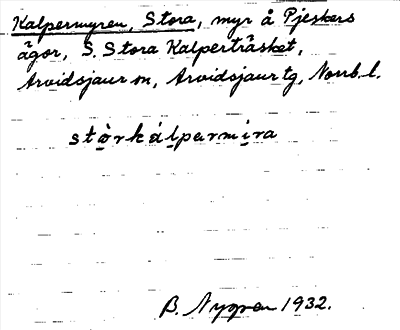 Kalpermyren, Stora, myr å Pjeskers
ägor, S. Stora Kalperträsket,
Arvidsjaur sn, Arvidsjaur tg, Norrb. l.
stòrkálpermira
B. Nygren 1932.